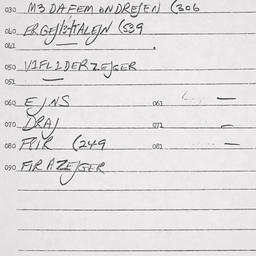 030 M3 DAFEM ONDREJEN (306
040 ERGEJ13/TALEJN (539
041
050 V1FL2DERZEJGER
051
060 EJNS 061 —
070 DRAJ 072 —
080 FHIR (249 081 —
090 FIRAZEJGER